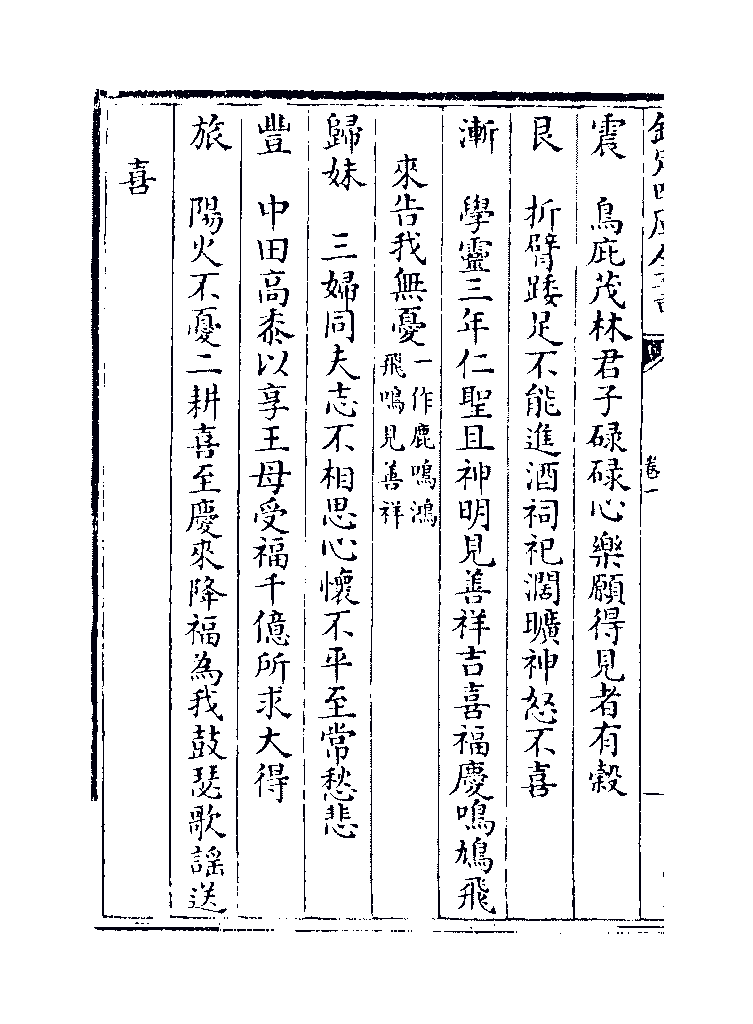 欽定四庫全書
卷一
震　鳥庇茂林君子碌碌心樂願得見者有榖
艮　折臂踒足不能進酒祠祀濶曠神怒不喜
漸　學靈三年仁聖且神明見善祥吉喜福慶鳴鳩飛
來告我無憂一作鹿鳴鴻飛鳴見善祥
歸妹　三婦同夫志不相思心懷不平至常愁悲
豐　中田高黍以享王母受福千億所求大得
旅　陽火不憂二耕喜至慶來降福為我鼓瑟歌謡送
喜